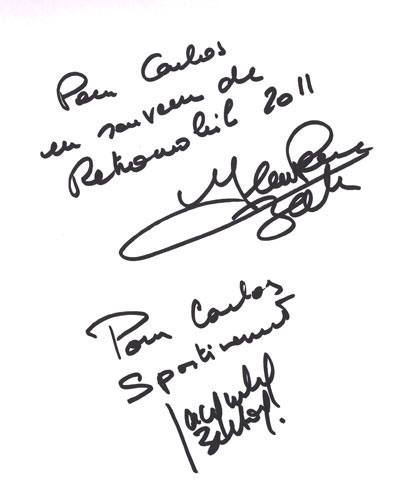 Pour Carlos
en souvenir de
Retromobile 2011
Pour Carlos
Sportivement